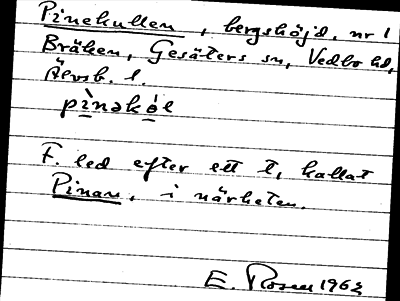 Pinekullen, bergshöjd, nr 1
Bräken, Gesäters sn, Vedbo hd,
Älvsb. l.
pìnəkól
F. led efter ett t, kallat
Pinan, i närheten.
E. Rosen 1962